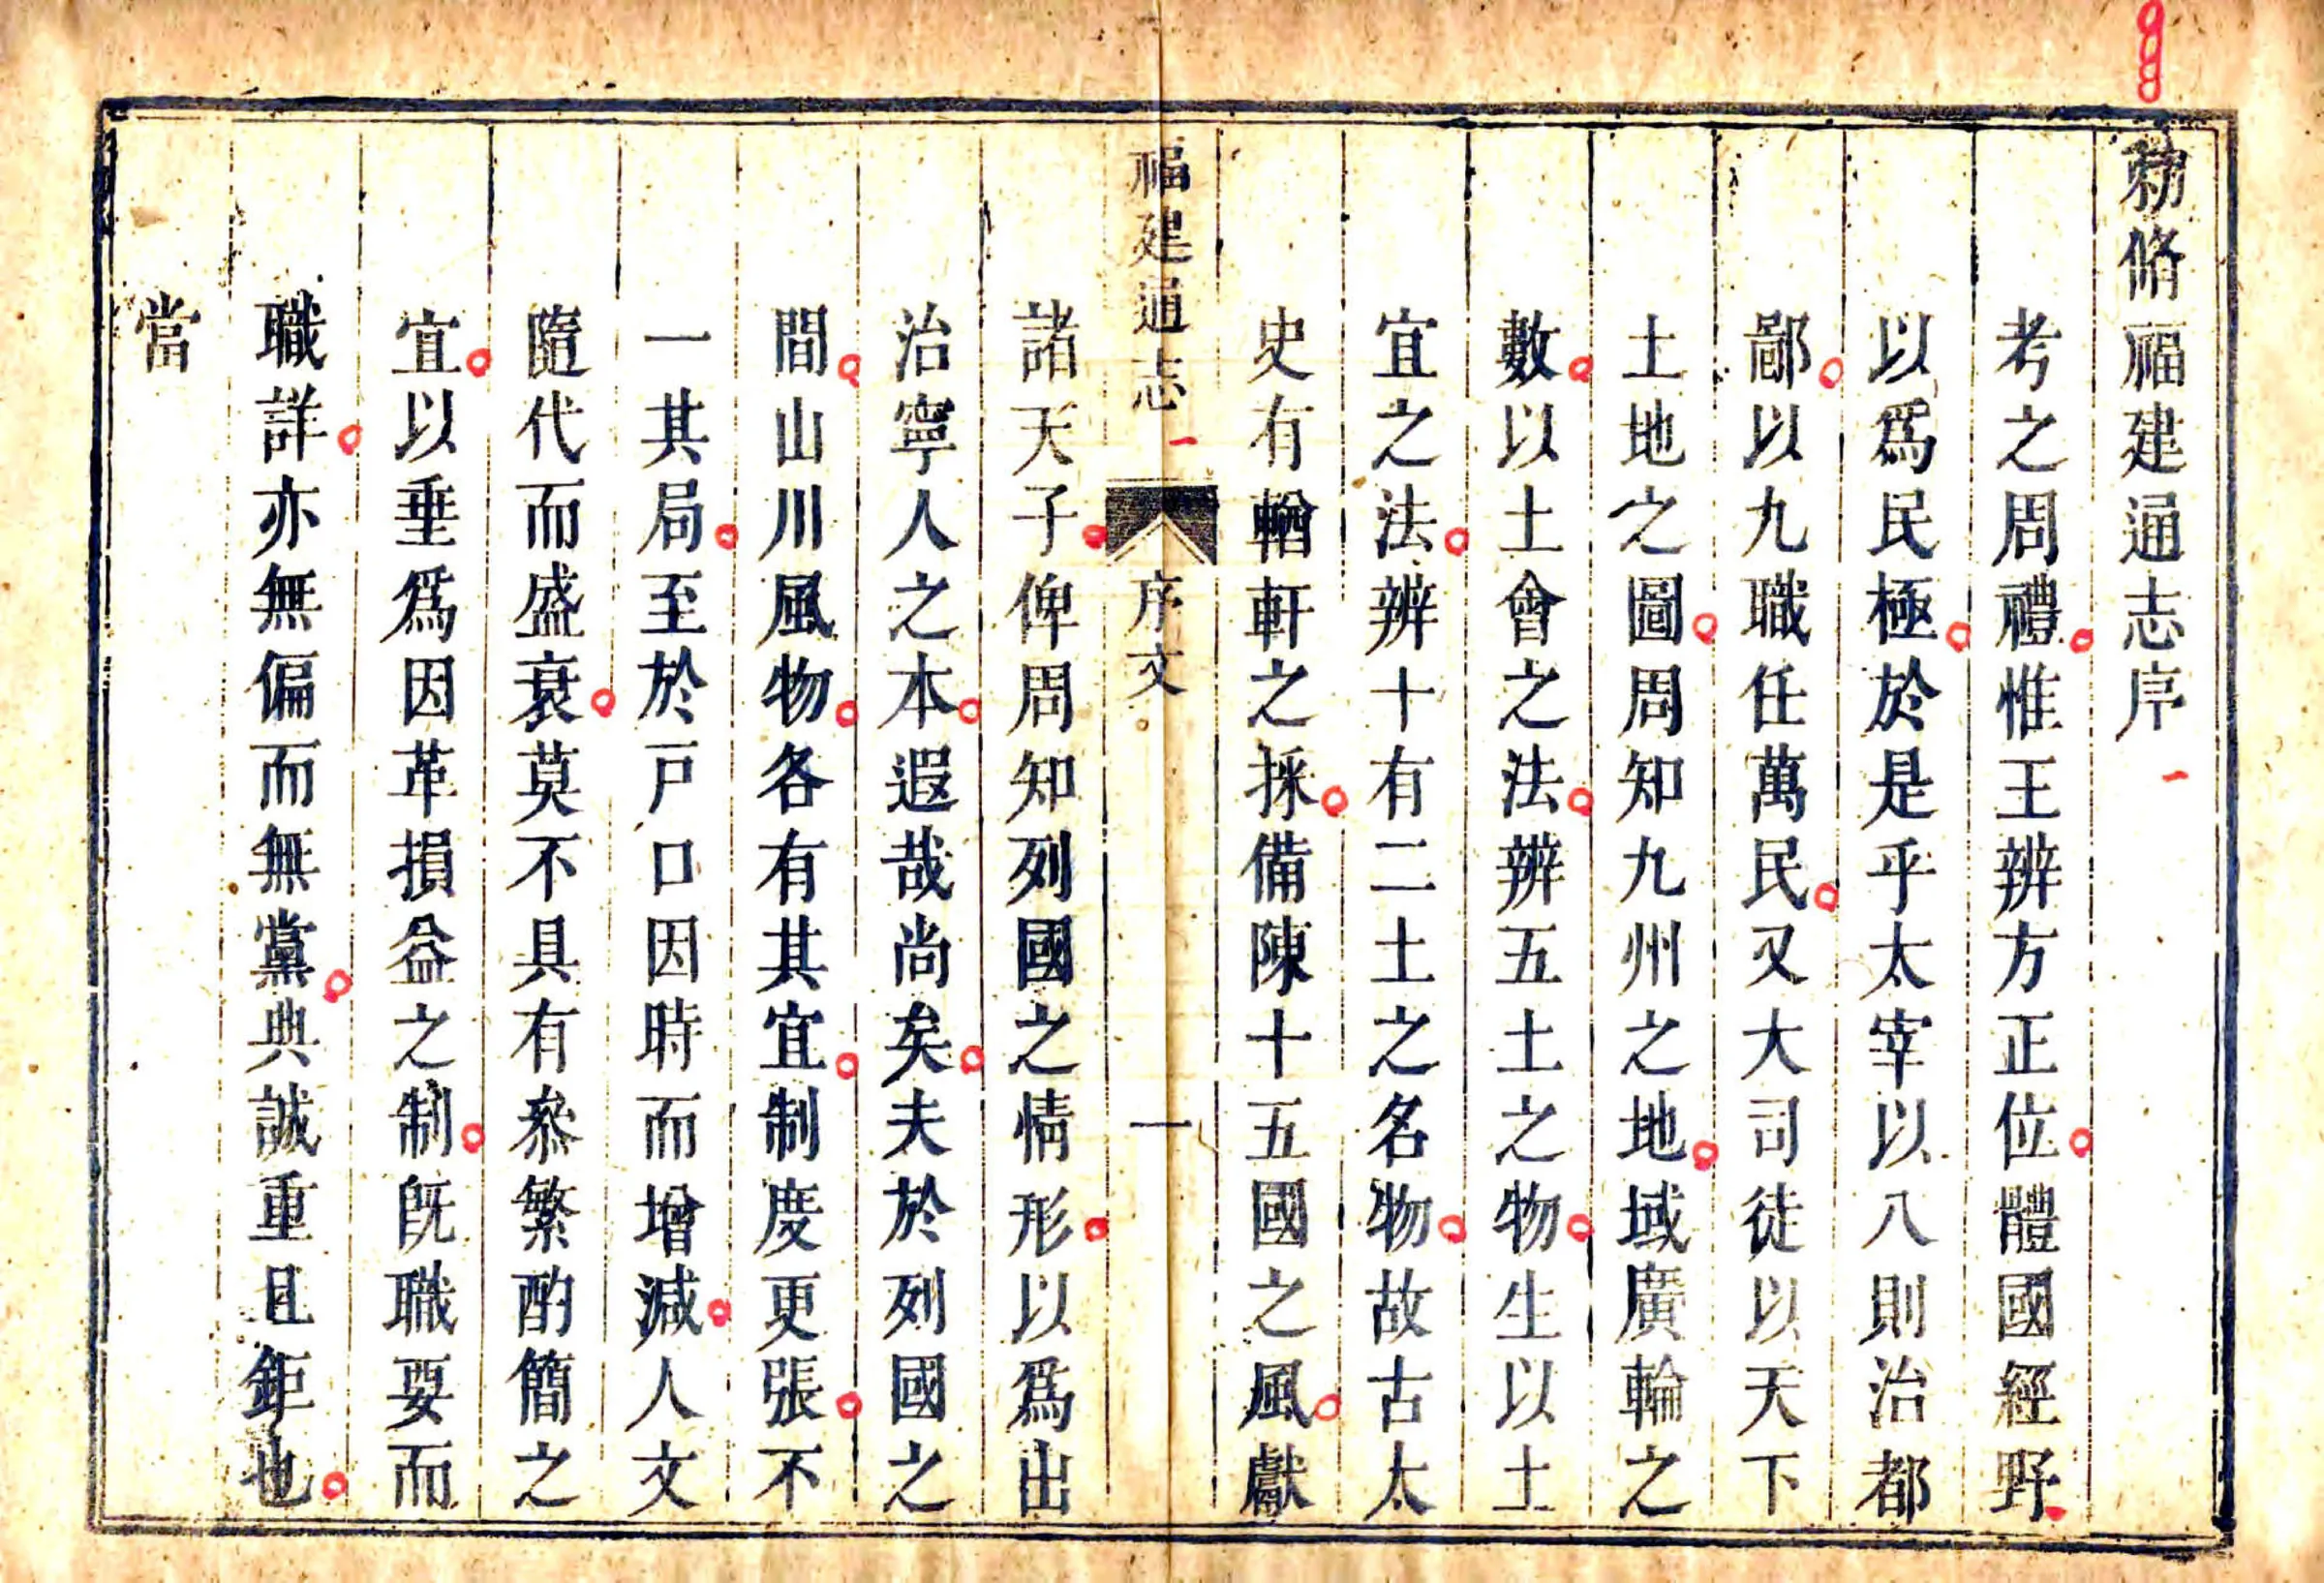 勑脩福建通志序
考之周禮惟王辨方正位體國經野
以爲民極於是乎太宰以八則治都
鄙以九職任萬民又大司徒以天下
土地之圖周知九州之地域廣輪之
數以土會之法辨五土之物生以土
宜之法辨十有二土之名物故古太
史有輶軒之採備陳十五國之風獻
福建通志 序文 一
諸天子俾周知列國之情形以爲出
治寧人之本遐哉尚矣夫於列國之
間山川風物各有其宜制度更張不
一其局至於戸口因時而增減人文
隨代而盛衰莫不具有叅繁酌簡之
宜以垂爲因革損益之制旣職要而
職詳亦無偏而無黨典誠重且鉅也
當